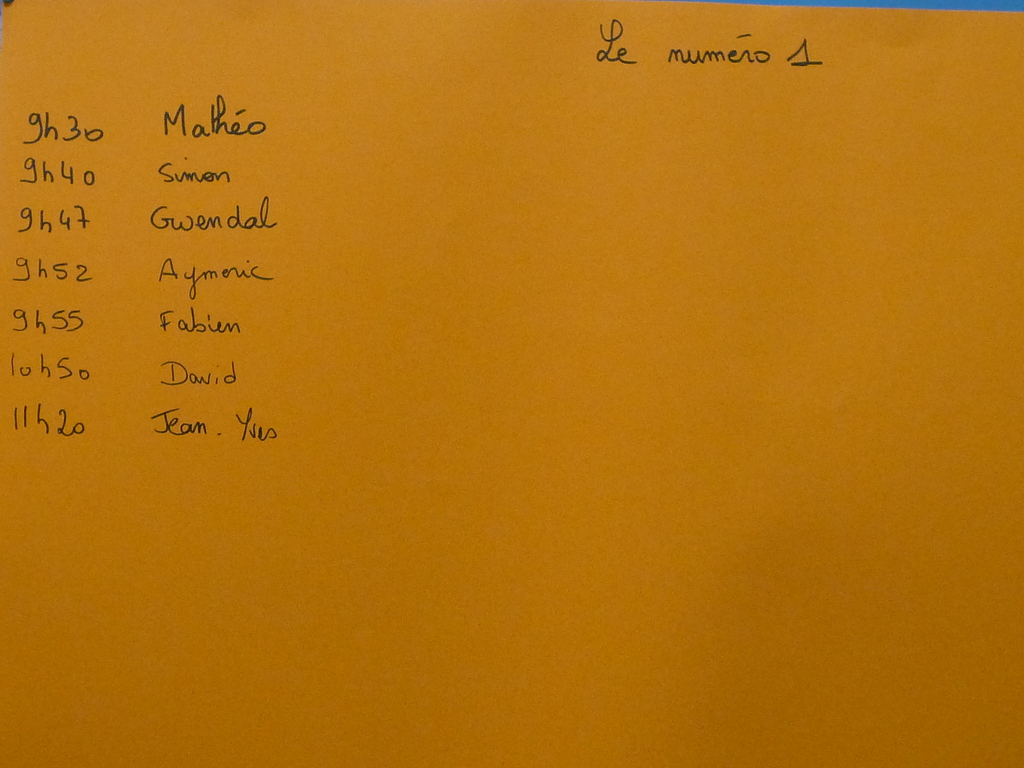 Le numéro 1
9h30 Mathéo
9h40 Simon
9h47 Gwendal
9h52 Aymeric
9h55 Fabien
10h50 David
11h20 Jean-Yves